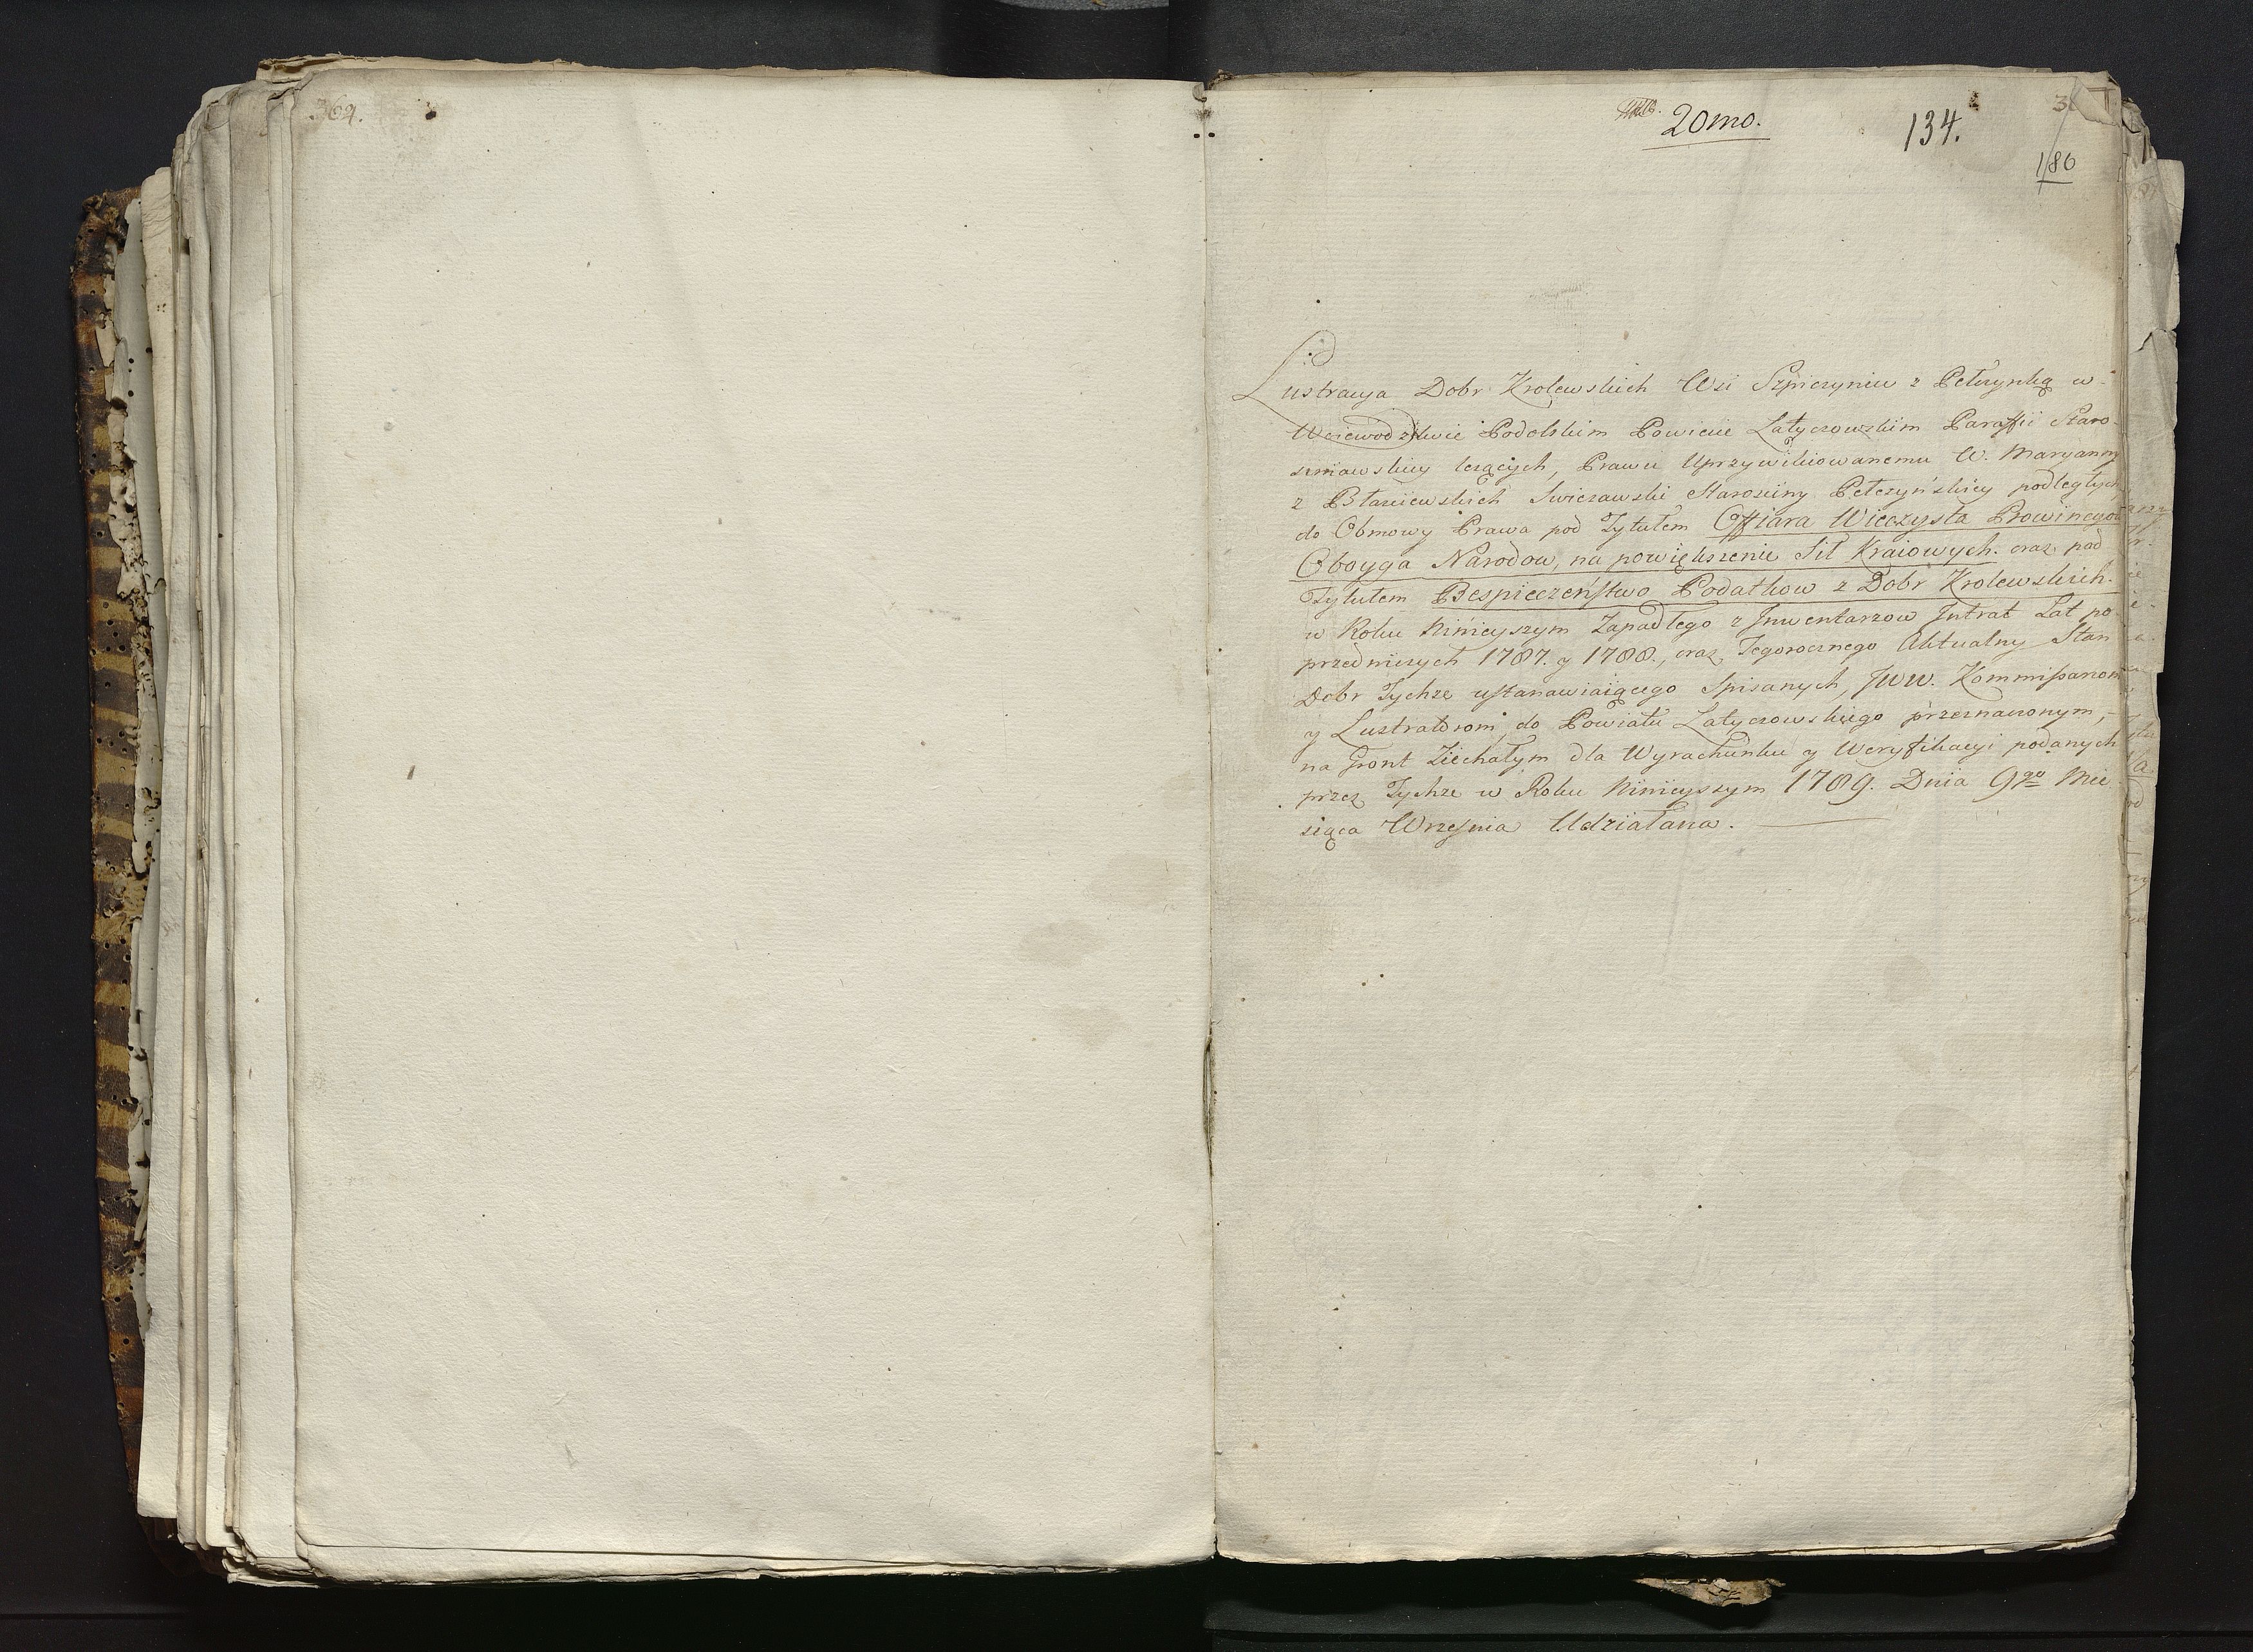 364.
20mo.
134.
186
Lustracya Dobr Krolewskich Wsi Szpiczyniec z Pełczynką w
Woiewodztwie Podolskim Powiecie Latyczowskim Paraffii Staro
sieniawskiey leżących, Prawu Uprzywiliowanemu W. Maryanny
z Swiczawski Starosciny Pełczyńskiey podległych
do Obmowy Prawa pod Tytułem Offiara Wieczysta Prowincyow
Oboyga Narodow, na powiększenie Sił Kraiowych. oraz pod
Tytułem Bespieczeństwo Podatkow z Dobr Krolewskich.
w Roku Ninieyszym Zapadłego z Jnwentarzow Jntrat Lat po
przedniczych 1787. y 1788., oraz Tegorocznego Aktualny Stan
Dobr Tychże ustanawiaiącego Spisanych, JWW. Kommissarzom
y Lustratorom, do Powiatu Latyczowskiego przeznaczonym,
na Gront Ziechałym dla Wyrachunku y Weryfikacyi podanych
przez Tychże w Roku Ninieyszym 1789. Dnia 9go Mie
siąca Września Udziałana.